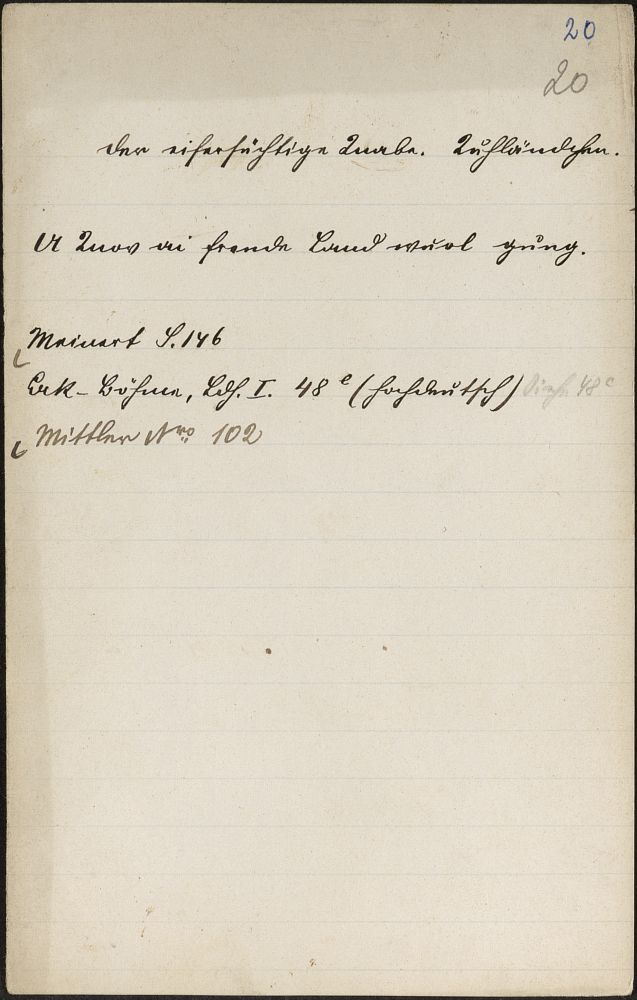 20
20
Der eifersüchtige Knabe. Kuhländchen.
A Knov ai frende Land wuol gung.
Meinert S. 146
Erk-Böhme, Ldh. I. 48 e (hochdeutsch) 48 c
Mittler Nro 102